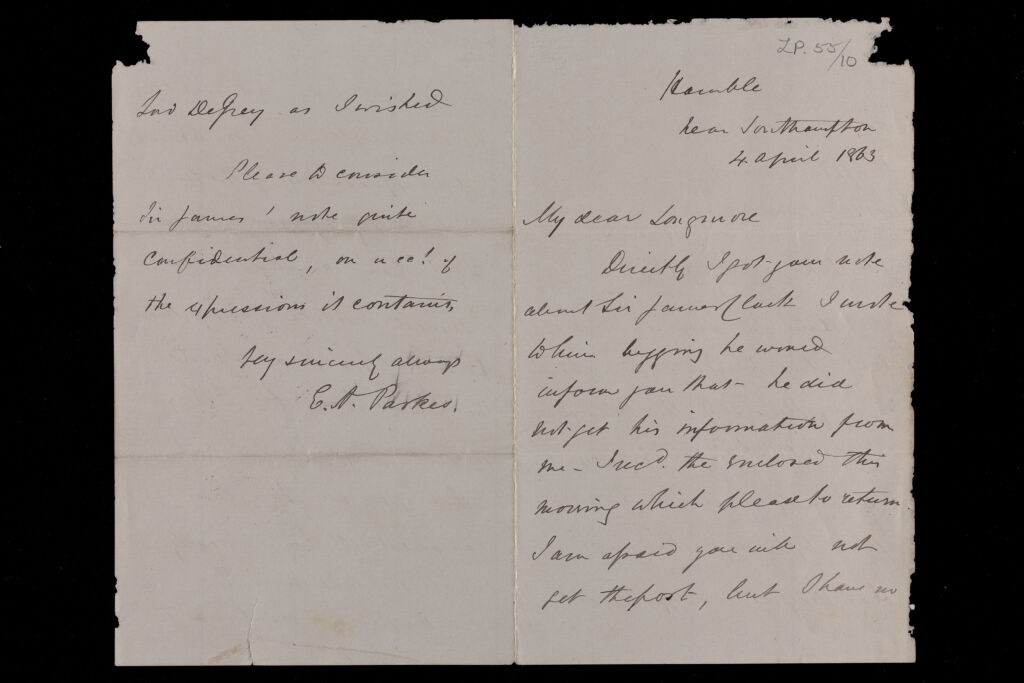 LP. 55/10
Hamble
near Southampton
4 April 1863
My dear Longmore
Directly I got your note
about Sir James Clark I wrote
to him begging he would
inform you that he did
not get his information from
me – I recd. the enclosed this
morning which please to return.
I am afraid you will not
get the post, but I have no
Lord De Grey as I wished
Please to consider
Sir James' note quite
confidential, on acct. of
the expressions it contains,
Very sincerely always
E. A. Parkes.